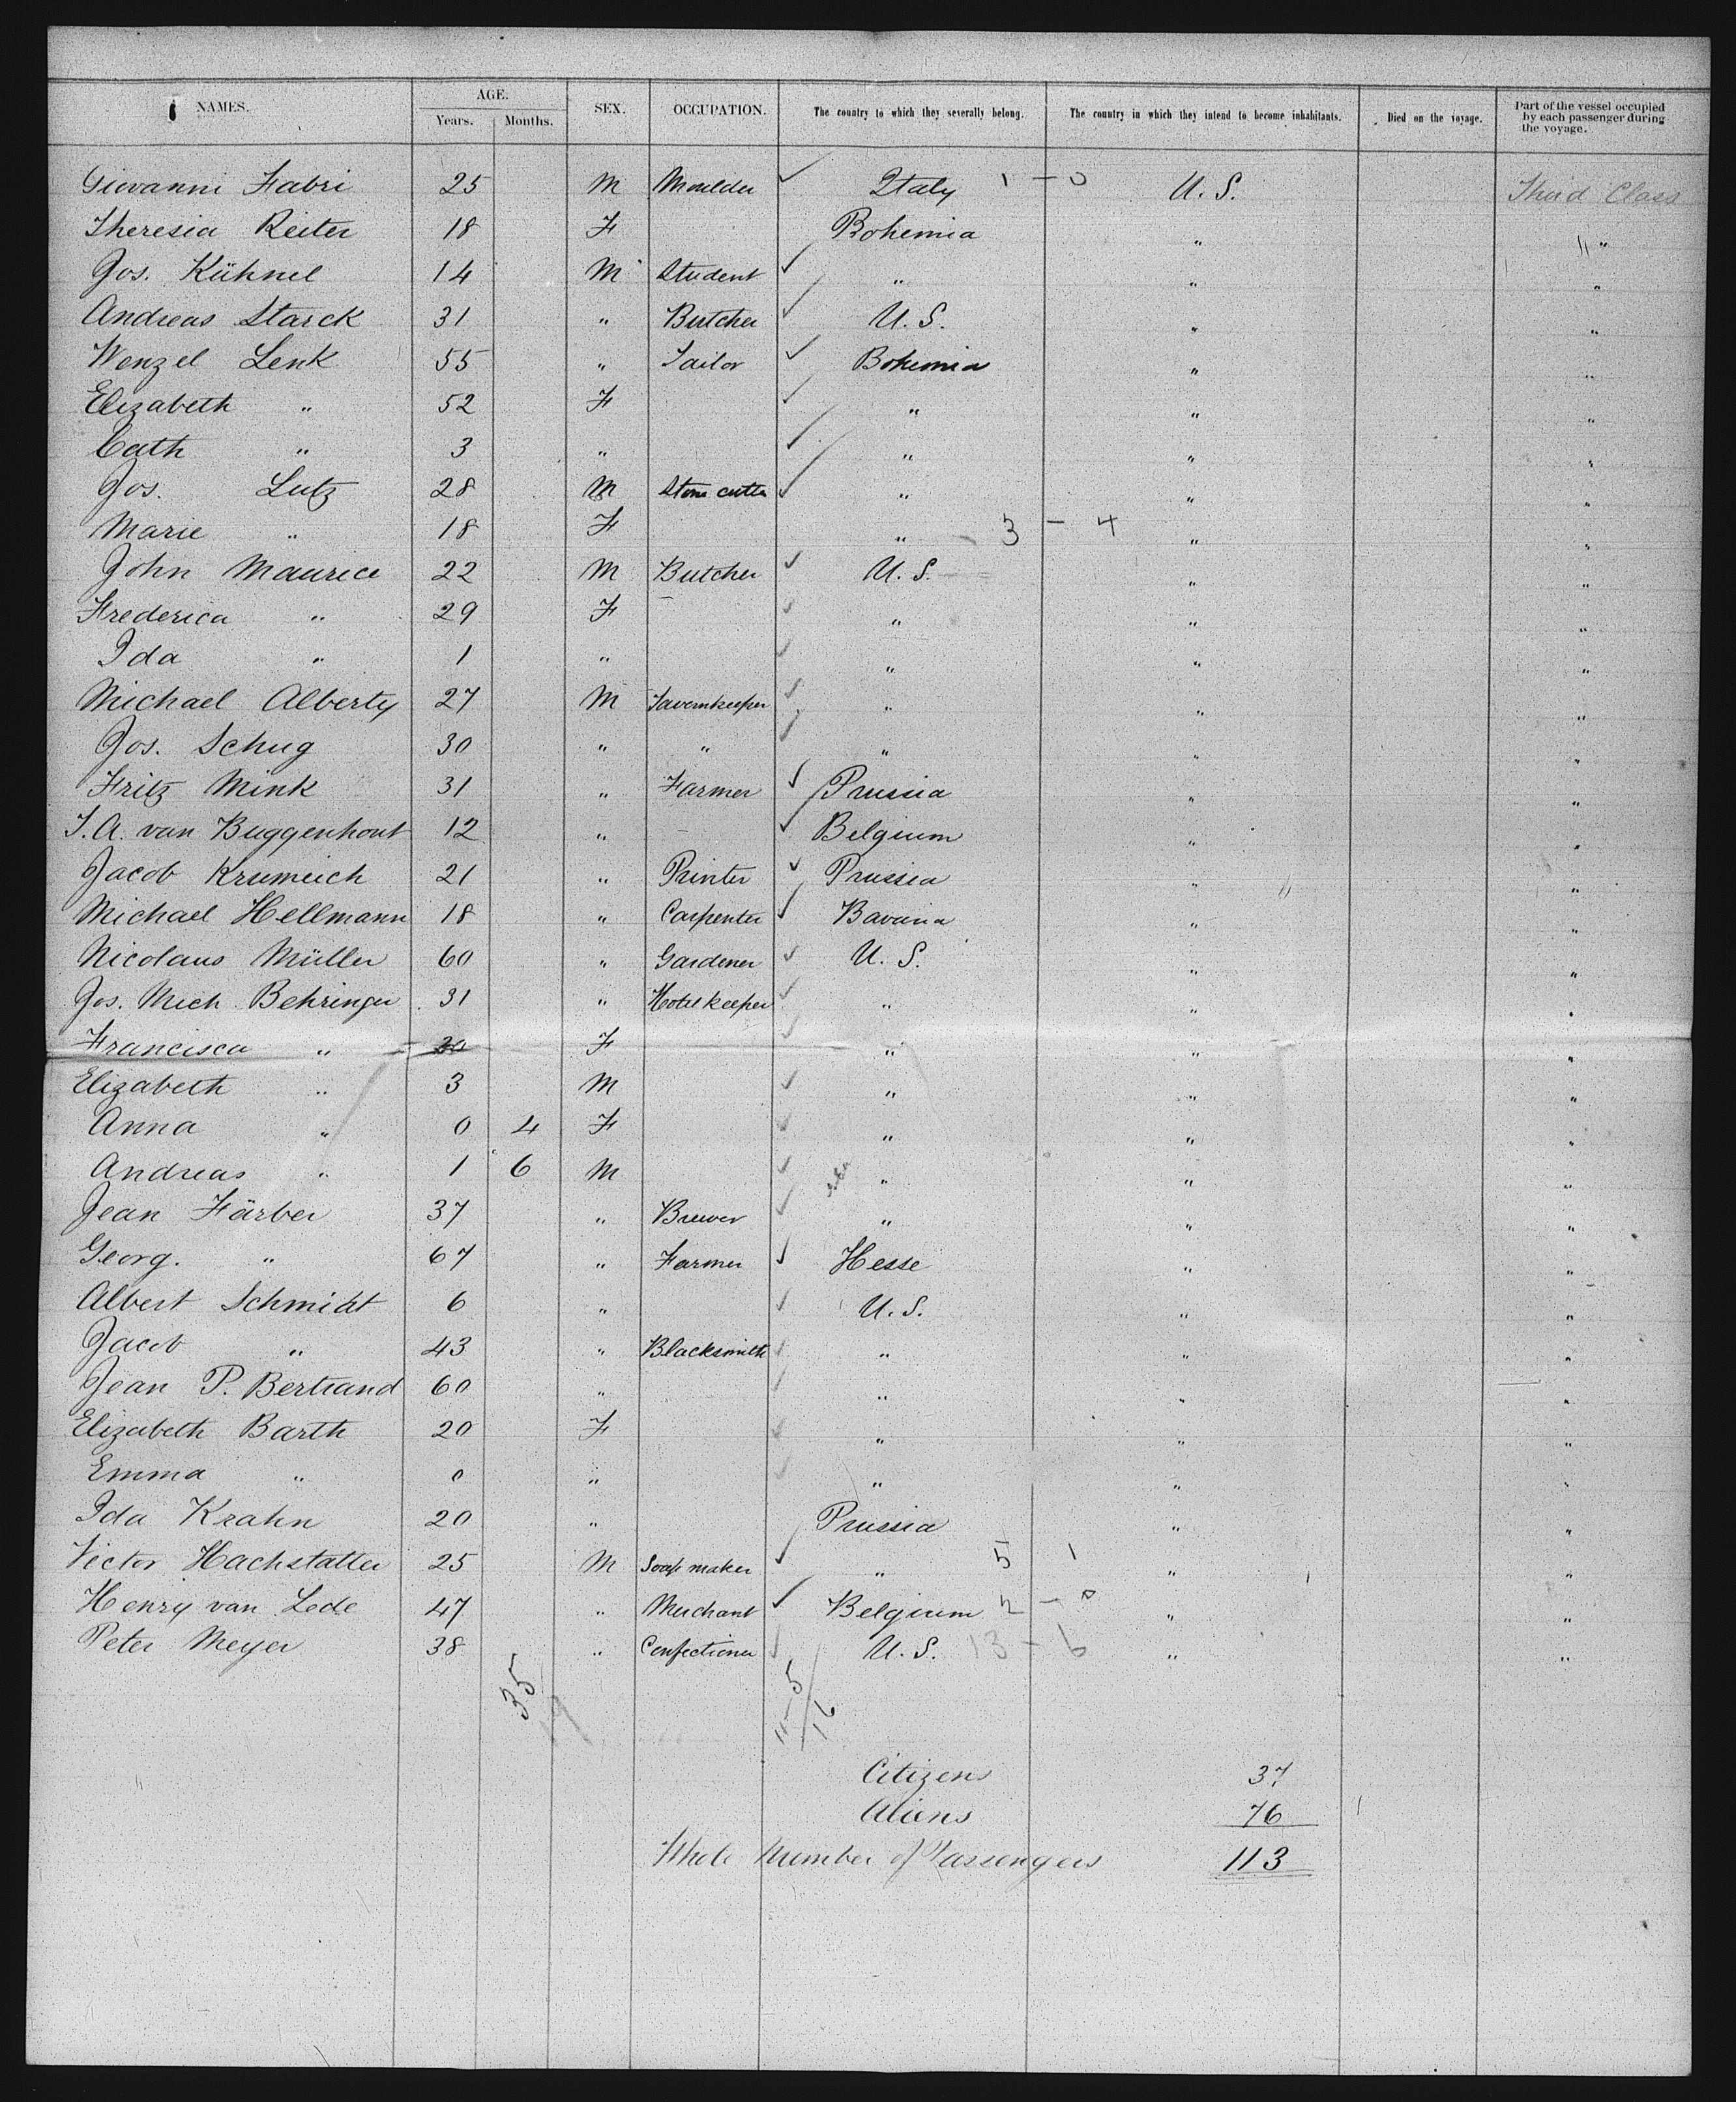 NAMES. AGE. Years. Months. SEX. OCCUPATION. The country to which they severally belong. The country in which they intend to become inhabitants. Died on the voyage. Part of the vessel occupied by each passenger during the voyage.
Giovanni Fabri 25 M Moulder ✓ Italy 1 – 0 U. S. Third Class
Theresia Reiter 18 F Bohemia " "
Jos. Kühnel 14 M Student ✓ " " "
Andreas Starck 31 " Butcher ✓ U. S. " "
Wenzel Lenk 55 " Tailor ✓ Bohemia " "
Elizabeth " 52 F ✓ " " "
Cath " 3 " ✓ " " "
Jos. Lutz 28 M Stone cutter ✓ " " "
Marie " 18 F " 3 – 4 " "
John Maurice 22 M Butcher ✓ U. S. " "
Frederica " 29 F ✓ " " "
Ida " 1 " ✓ " " "
Michael Alberty 27 M Tavernkeeper ✓ " " "
Jos. Schug 30 " " ✓ " " "
Fritz Mink 31 " Farmer ✓ Prussia " "
J. A. van Buggenhout 12 " – ✓ Belgium " "
Jacob Krumeich 21 " Printer ✓ Prussia " "
Michael Hellmann 18 " Carpenter ✓ Bavaria " "
Nicolaus Müller 60 " Gardener ✓ U. S. " "
Jos. Mich Behringer 31 " Hotelkeeper ✓ " " "
Francisca " 30 F ✓ " " "
Elizabeth " 3 M ✓ " " "
Anna " 0 4 F ✓ " " "
Andreas " 1 6 M ✓ " " "
Jean Färber 37 " Brewer ✓ " " "
Georg. " 67 " Farmer ✓ Hesse " "
Albert Schmidt 6 " ✓ U. S. " "
Jacob " 43 " Blacksmith ✓ " " "
Jean P. Bertrand 60 " ✓ " " "
Elizabeth Barth 20 F ✓ " " "
Emma " 0 " ✓ " " "
Ida Krahn 20 " Prussia " "
Victor Hachstatter 25 M Soap maker ✓ " 5 1 " "
Henry van Lede 47 " Merchant ✓ Belgium 2 – 0 " "
Peter Meyer 38 " Confectioner ✓ U. S. 13 – 6 " "
35 19 11 – 5 16
Citizens 37
Aliens 76
Whole Number of Passengers 113